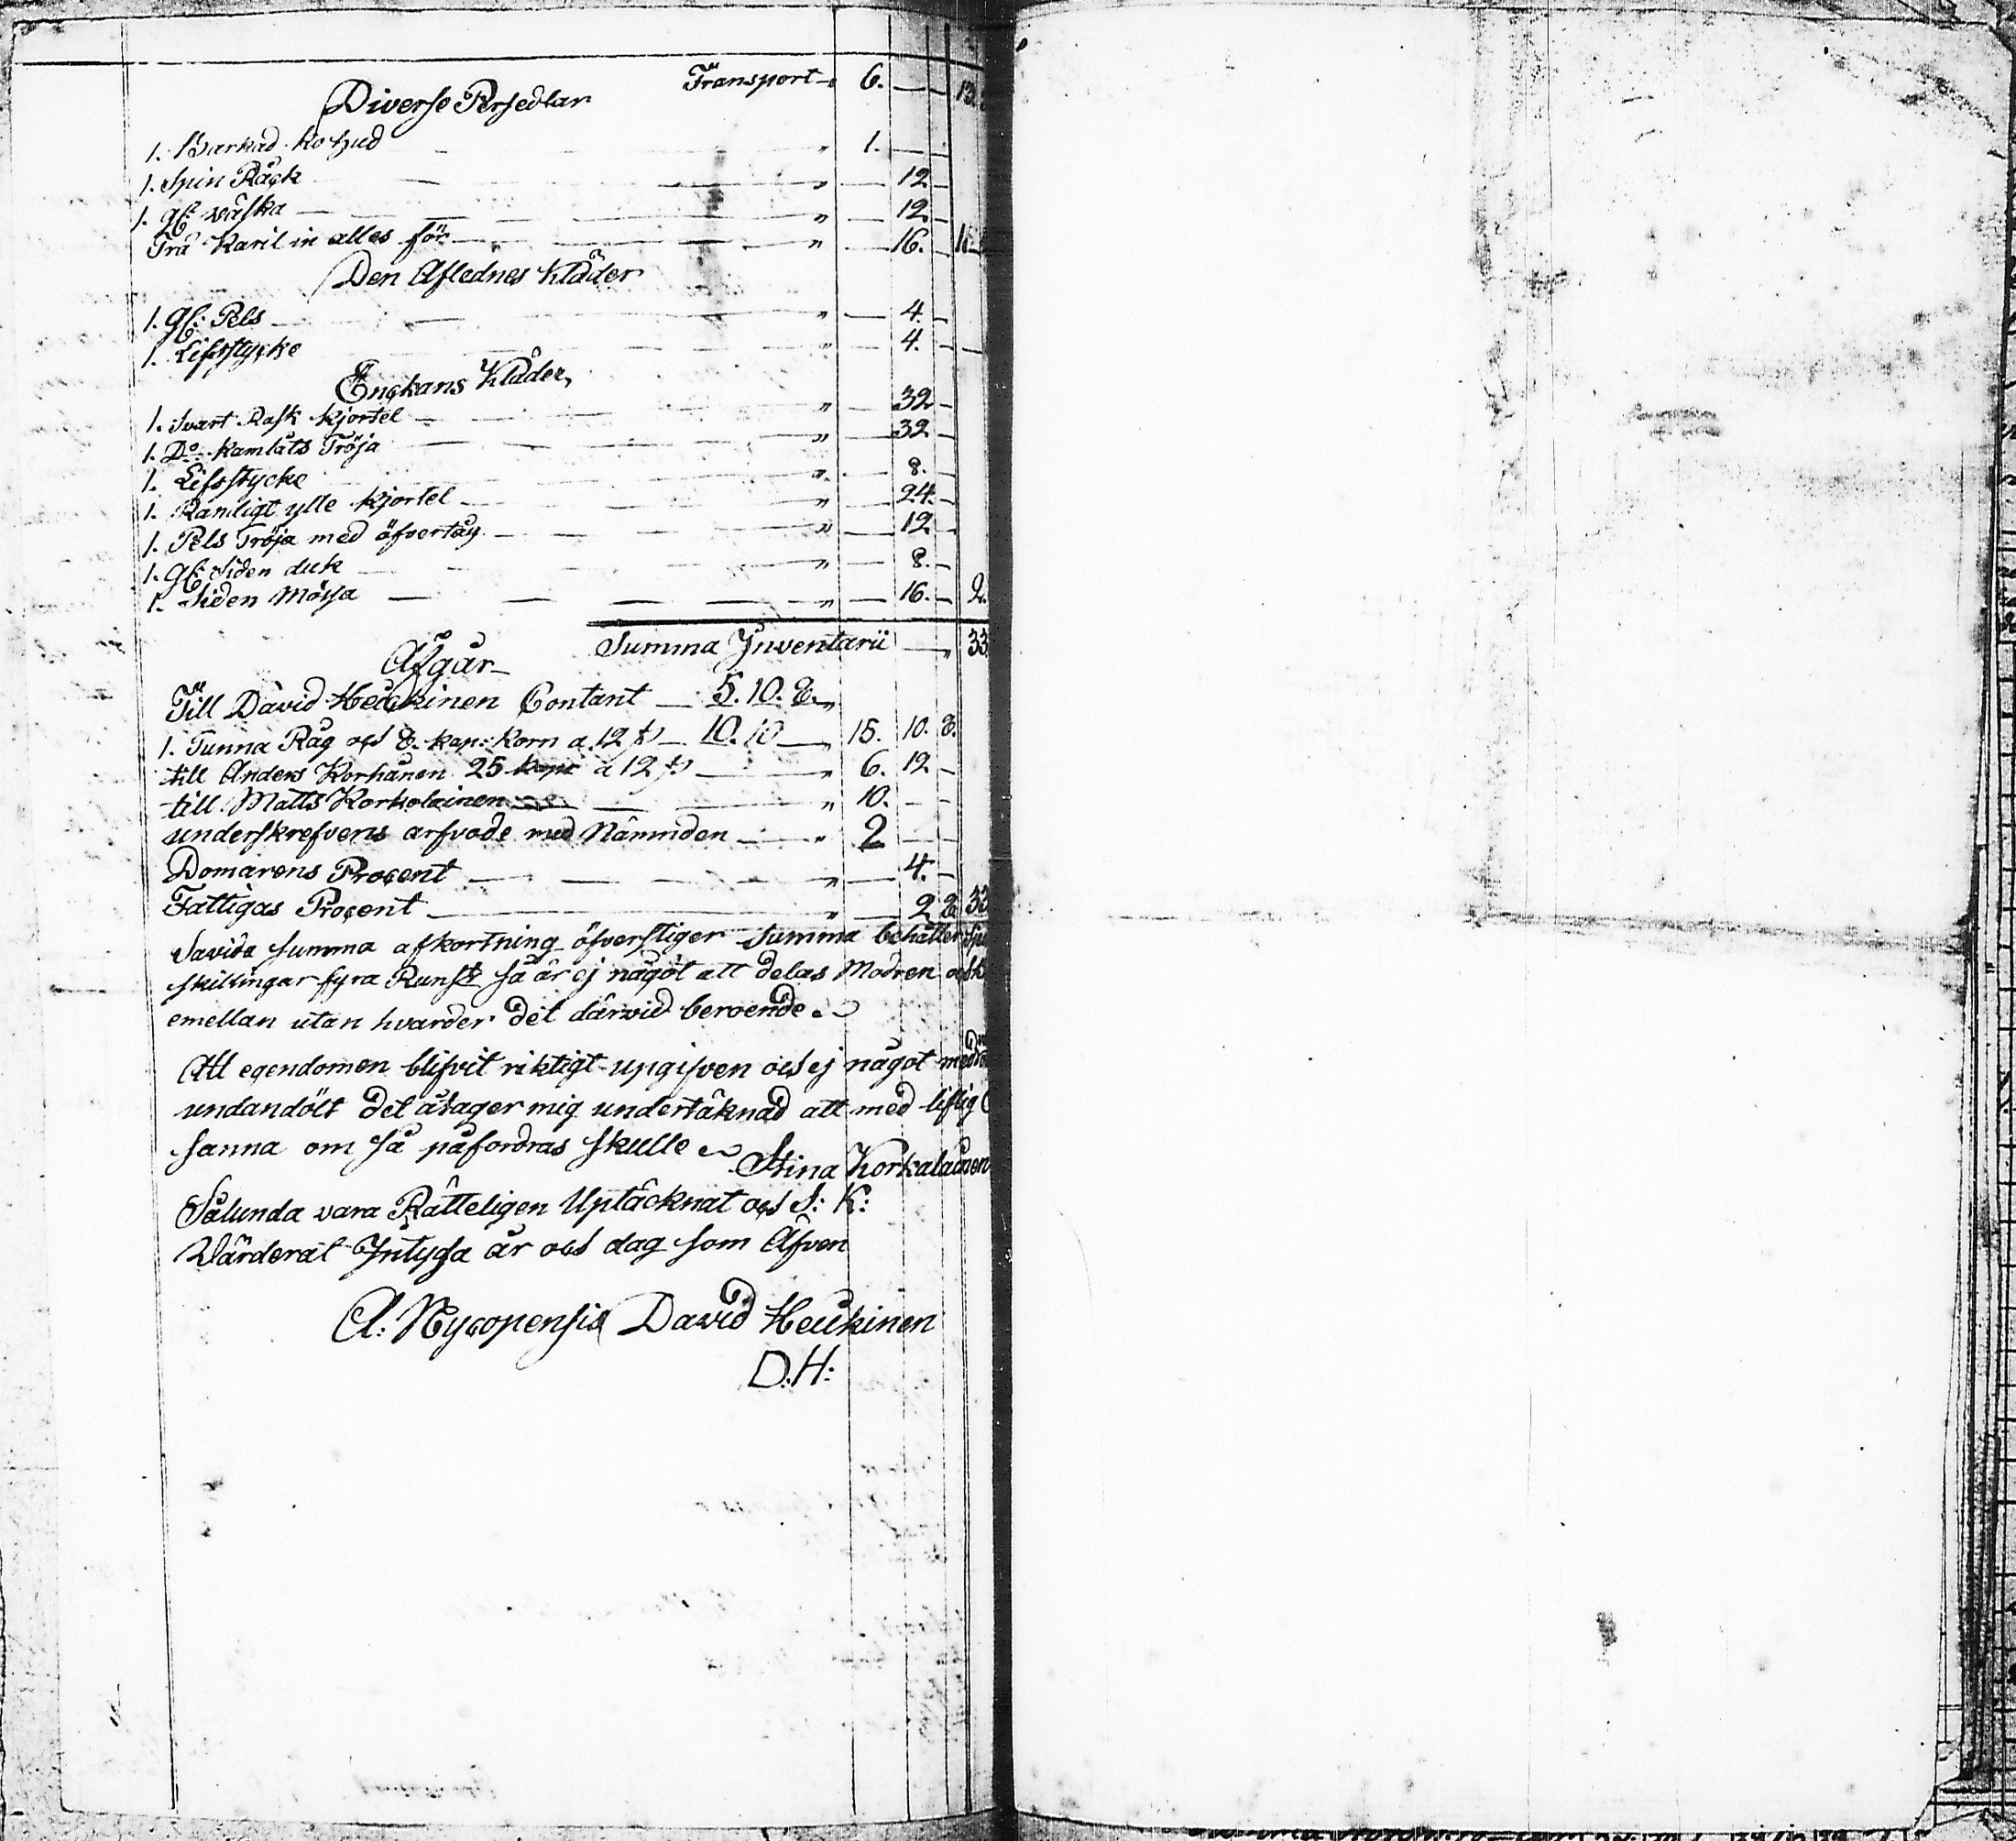 Transport 6. — 13.
Diverse Persedlar
1. Barkad ko hud — " 1. —
1. Spin Råck — " — 12 —
1. gl: wäska — " — 12 —
Trä Karil in alles för — " — 16. —
Den Aflednes Kläder
1. gl: Pels — " — 4. —
1. Lifstycke — " — 4. —
Enckans Kläder,
1. Svart Rask Kjortel — " — 32 —
1. Do Kamlåts Tröja — " — 32 —
1. Lifsstycke " — 8. —
1. Randigt ylle kjortel — " — 24. —
1. Pels Tröja med öfvertåg — " — 12 —
1. gl: Siden duk — " — 8. —
1. Siden Mössa — " — 16. — 2.
Summa Inventarii — " 33
Afgår
Till David Heukinen Contant — 5. 10. 8. "
1. Tunna Råg och 8. kap: Korn a 12 — 10. 10 — " 15. 10. 8.
till Anders Korhånen 25 kapr a 12 — " 6. 12 —
till Matts Korkolainen — " 10. —
underskrefvens arfvode med Nämnden — " 2 —
Domarens Procent — " — 4. —
Fattigas Procent — " — 2 8 33
Savida Summa afkortning öfverstiger Summa behåller
skillingar fyra Runst så är ej något att delas Modren och
emellan utan hvarder det därvid beroende.
Att egendomen blifvit riktigt upgifven och ej något med
undandölt det åtager mig undertäknad att med liflig
sanna om så påfordras skulle
Stina Korkalainen
Sålunda vara Rätteligen Uptäcknat och S: K:
Värderat Intyga år och dag som Äfven
A: Nycopensis David Heukinen
D. H: